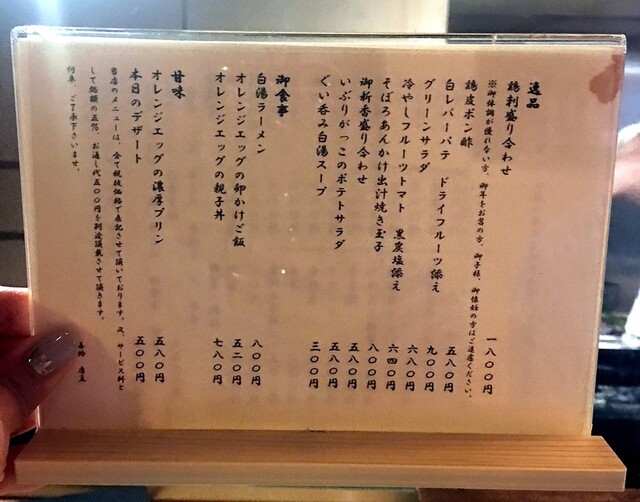 逸品
鶏刺盛り合わせ 一八〇〇円
※御体調が優れない方、御年をお召の方、御子様、御懐妊の方はご遠慮ください。
鶏皮ポン酢 五八〇円
白レバーパテ ドライフルーツ添え 九〇〇円
グリーンサラダ 六八〇円
冷やしフルーツトマト 黒炭塩添え 六四〇円
そぼろあんかけ出汁焼き玉子 八〇〇円
御新香盛り合わせ 五八〇円
いぶりがっこのポテトサラダ 五八〇円
ぐい呑み白湯スープ 三〇〇円
御食事
白湯ラーメン 八〇〇円
オレンジエッグの卵かけご飯 五二〇円
オレンジエッグの親子丼 七八〇円
甘味
オレンジエッグの濃厚プリン 五八〇円
本日のデザート 五〇〇円
当店のメニューは、全て税抜価格で表記させて頂いております。又、サービス料と
して総額の五%、お通し代五〇〇円を別途頂戴させて頂きます。
何卒、ご了承下さいませ。
店主